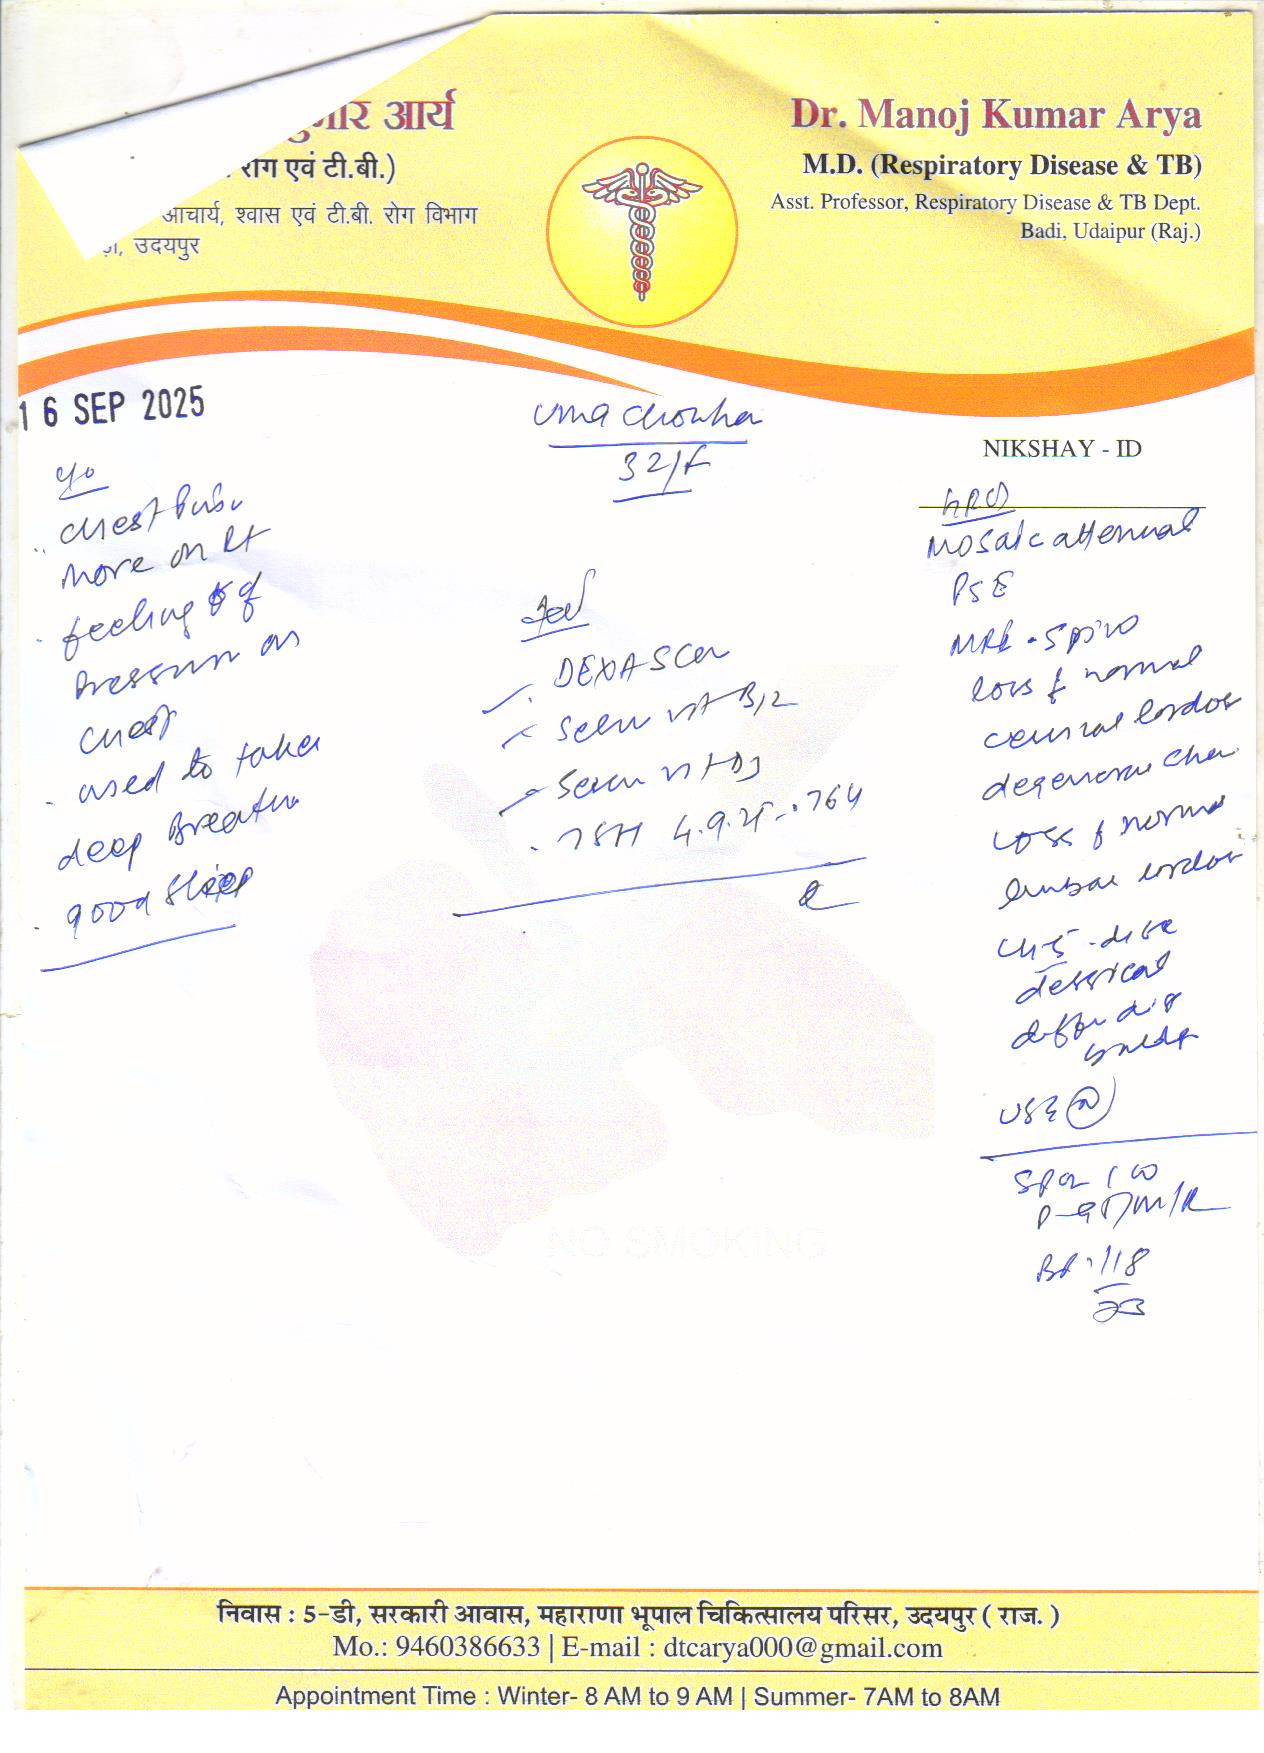 कुमार आर्य
रोग एवं टी.बी.)
आचार्य, श्वास एवं टी.बी. रोग विभाग
उदयपुर
Dr. Manoj Kumar Arya
M.D. (Respiratory Disease & TB)
Asst. Professor, Respiratory Disease & TB Dept.
Badi, Udaipur (Raj.)
16 SEP 2025
Uma
32/F
NIKSHAY - ID
chest
more on Rt
feeling of
pressure on
chest
used to take
deep Breath
good sleep
Adv
DEXA Scan
Serum vit B12
Serum vit D3
TSH 4.9.25 - .764
HRCT
Mosaic attenuat
PSE
MRI - Spine
loss of normal
cervical lordos
degenerative chan
Loss of normal
lumbar lordos
disc
dessical
diffuse
USG N
SPO2 100
P-97/m/R
BP - 118
NO SMOKING
निवास : 5-डी, सरकारी आवास, महाराणा भूपाल चिकित्सालय परिसर, उदयपुर ( राज. )
Mo.: 9460386633 | E-mail : dtcarya000@gmail.com
Appointment Time : Winter- 8 AM to 9 AM | Summer- 7AM to 8AM